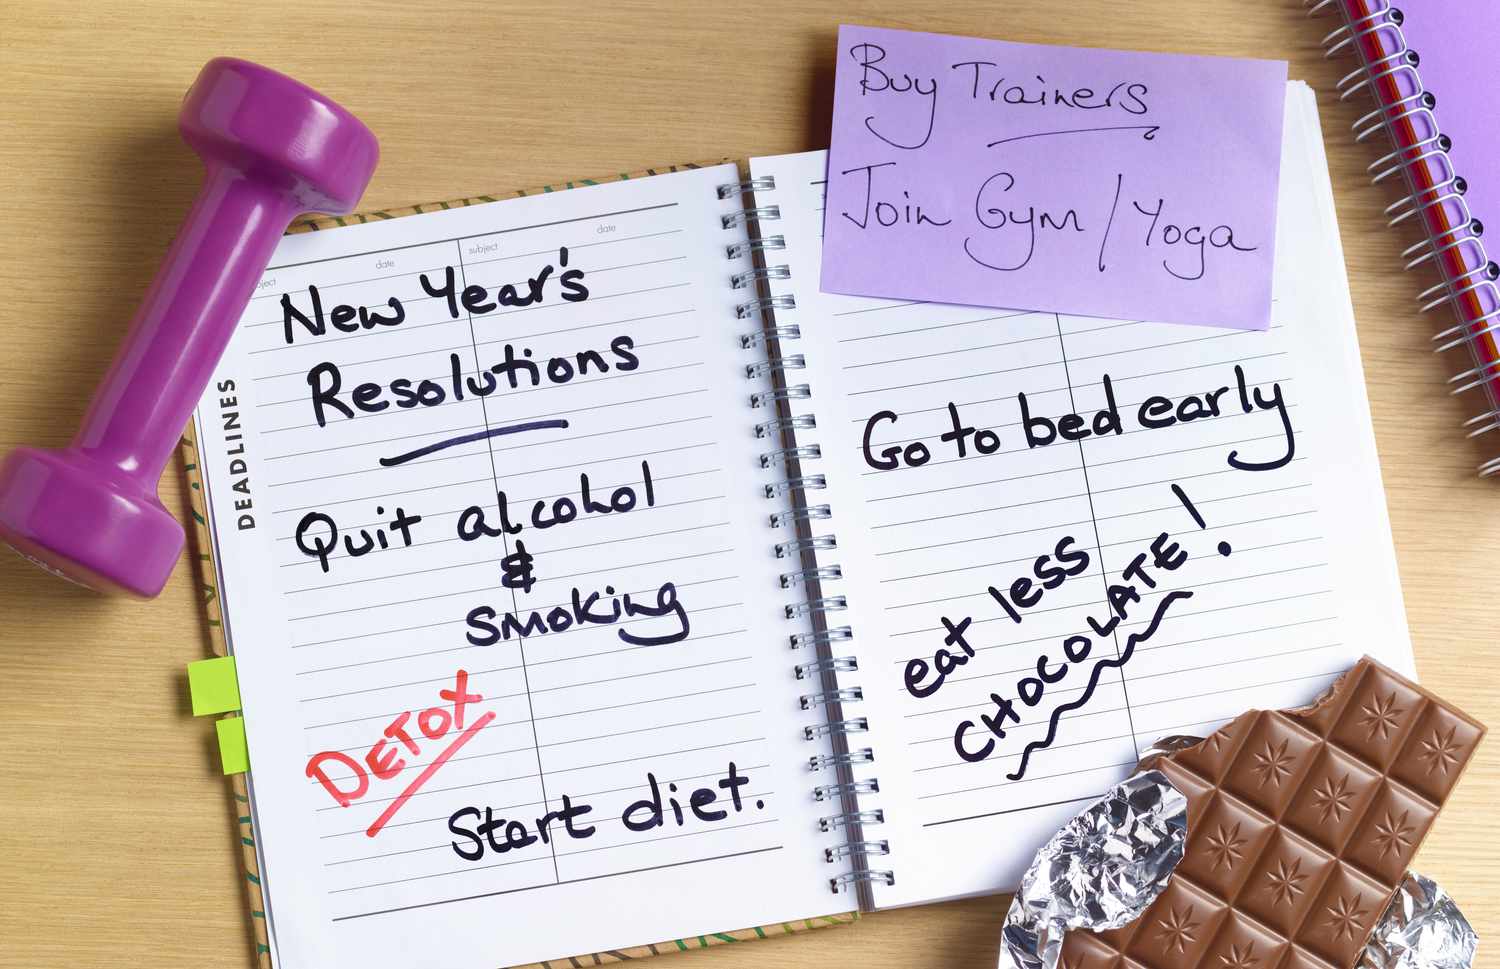 subject date subject date
New Year's
Resolutions
DEADLINES
Quit alcohol
&
smoking
DETOX
Start diet.
Buy Trainers
Join Gym / Yoga
Go to bed early
eat less
CHOCOLATE!